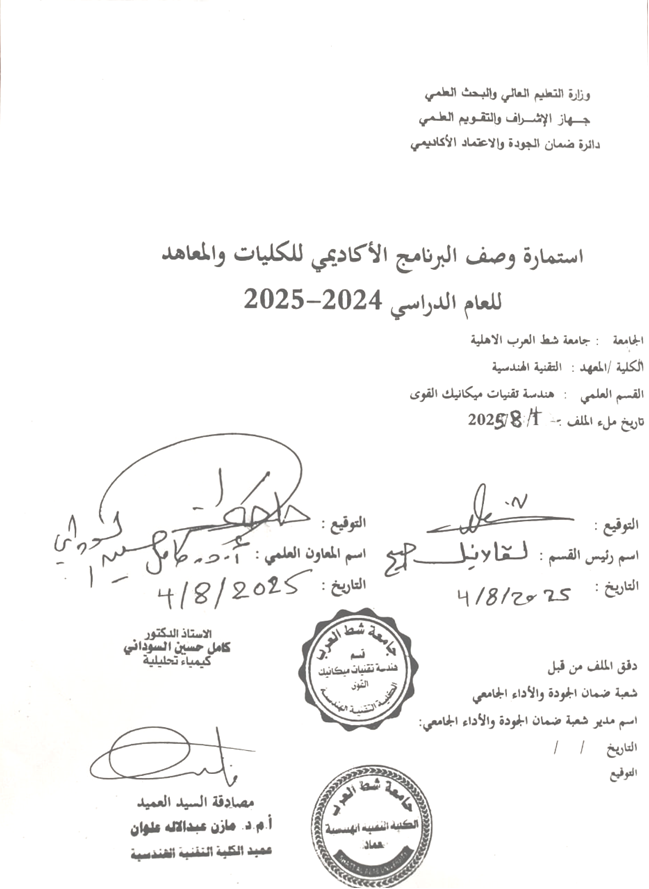 وزارة التعليم العالي والبحث العلمي
جهاز الإشراف والتقويم العلمي
دائرة ضمان الجودة والاعتماد الأكاديمي
استمارة وصف البرنامج الأكاديمي للكليات والمعاهد
للعام الدراسي 2024–2025
الجامعة : جامعة شط العرب الاهلية
الكلية /المعهد : التقنية الهندسية
القسم العلمي : هندسة تقنيات ميكانيك القوى
تاريخ ملء الملف :- 2025/8/1
التوقيع :
اسم رئيس القسم :
التاريخ : 4/8/2025
التوقيع :
اسم المعاون العلمي : أ.د. كامل حسين السوداني
التاريخ : 4/8/2025
الاستاذ الدكتور
كامل حسين السوداني
كيمياء تحليلية
جامعة شط العرب
قسم
هندسة تقنيات ميكانيك
القوى
الكلية التقنية الهندسية
دقق الملف من قبل
شعبة ضمان الجودة والأداء الجامعي
اسم مدير شعبة ضمان الجودة والأداء الجامعي:
التاريخ / /
التوقيع
مصادقة السيد العميد
أ.م.د. مازن عبدالاله علوان
عميد الكلية التقنية الهندسية
جامعة شط العرب
الكلية التقنية الهندسية